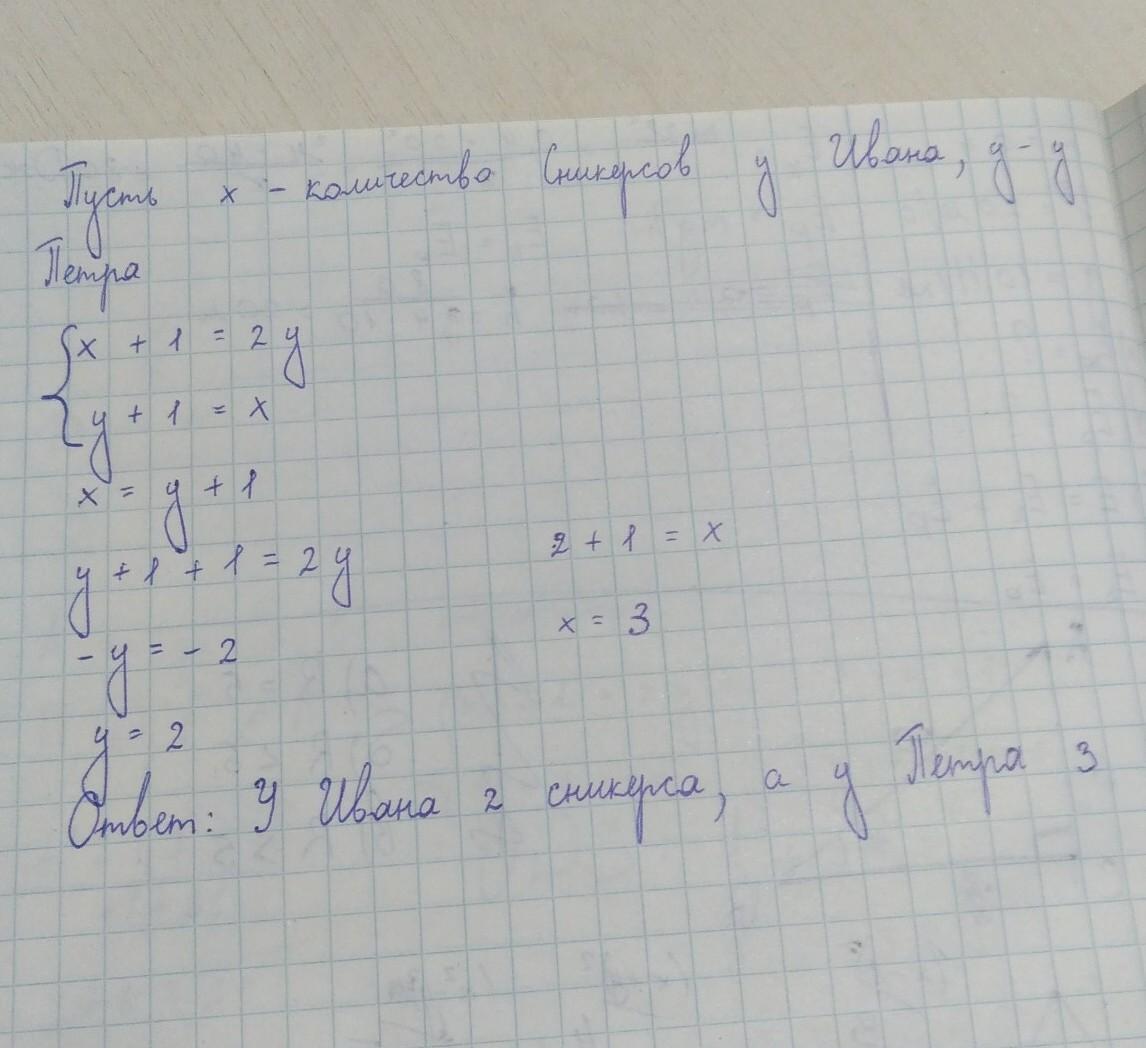 Пусть x - количество Сникерсов у Ивана, y - у
Петра
x + 1 = 2y
y + 1 = x
x = y + 1
y + 1 + 1 = 2y
2 + 1 = x
-y = -2
x = 3
y = 2
Ответ: У Ивана 2 сникерса, а у Петра 3